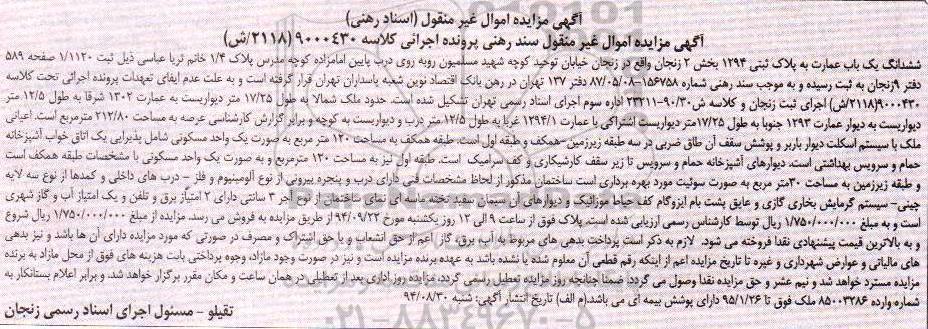 آگهی مزایده اموال غیر منقول (اسناد رهنی)
آگهی مزایده اموال غیر منقول سند رهنی پرونده اجرائی کلاسه ۹۰۰۰۴۳۰ (۲۱۱۸/ش)
ششدانگ یک باب عمارت به پلاک ثبتی ۱۲۹۴ بخش ۲ زنجان واقع در زنجان خیابان توحید کوچه شهید مسلمیون روبه روی درب پایین امامزاده کوچه مدرس پلاک ۱/۴ خانم ثریا عباسی ذیل ثبت ۱/۱۱۲۰ صفحه ۵۸۹
دفتر ۹زنجان به ثبت رسیده و به موجب سند رهنی شماره ۱۵۶۷۵۸-۸۷/۰۵/۰۸ دفتر ۱۳۷ تهران در رهن بانک اقتصاد نوین شعبه پاسداران تهران قرار گرفته است و به علت عدم ایفای تعهدات پرونده اجرائی تحت کلاسه
۹۰۰۰۴۳۰(۲۱۱۸/ش) اجرای ثبت زنجان و کلاسه ش۹۰/۳۰-۲۳۲۱۱ اداره سوم اجرای اسناد رسمی تهران تشکیل شده است. حدود ملک شمالا به طول ۱۷/۲۵ متر دیواریست به عمارت ۱۳۰۲ شرقا به طول ۱۲/۵ متر
دیواریست به دیوار عمارت ۱۲۹۳ جنوبا به طول ۱۷/۲۵متر دیواریست اشتراکی با عمارت ۱۲۹۴/۱ غربا به طول ۱۲/۵ متر درب و دیواریست به کوچه و برابر گزارش کارشناسی عرصه به مساحت ۲۱۲/۸۰ مترمربع است. اعیانی
ملک با سیستم اسکلت دیوار باربر و پوشش سقف آن طاق ضربی در سه طبقه زیرزمین-همکف و طبقه اول است. طبقه همکف به مساحت ۱۲۰ متر مربع به صورت یک واحد مسکونی شامل پذیرایی یک اتاق خواب آشپزخانه
حمام و سرویس بهداشتی است. دیوارهای آشپزخانه حمام و سرویس تا زیر سقف کاشیکاری و کف سرامیک است. طبقه اول نیز به مساحت ۱۳۰ مترمربع و به صورت یک واحد مسکونی با مشخصات طبقه همکف است
و طبقه زیرزمین به مساحت ۳۰متر مربع به صورت سوئیت مورد بهره برداری است ساختمان مذکور از لحاظ مشخصات فنی دارای درب و پنجره بیرونی از نوع آلومینیوم و فلز - درب های داخلی و کمدها از نوع سه لایه
چینی- سیستم گرمایش بخاری گازی و عایق پشت بام ایزوگام کف حیاط موزائیک و دیوارهای آن سیمان سفید تخته ماسه ای نمای ساختمان از نوع آجر ۳ سانتی دارای ۲ امتیاز برق و تلفن و یک امتیاز آب و گاز شهری
است و به مبلغ ۱/۷۵۰/۰۰۰/۰۰۰ ریال توسط کارشناس رسمی ارزیابی شده است. پلاک فوق از ساعت ۹ الی ۱۲ روز یکشنبه مورخ ۹۴/۰۹/۲۲ از طریق مزایده به فروش می رسد. مزایده از مبلغ ۱/۷۵۰/۰۰۰/۰۰۰ ریال شروع
و به بالاترین قیمت پیشنهادی نقدا فروخته می شود. لازم به ذکر است پرداخت بدهی های مربوط به آب، برق، گاز اعم از حق انشعاب و یا حق اشتراک و مصرف در صورتی که مورد مزایده دارای آن ها باشد و نیز بدهی
های مالیاتی و عوارض شهرداری و غیره تا تاریخ مزایده اعم از اینکه رقم قطعی آن معلوم شده یا نشده باشد به عهده برنده مزایده است و نیز در صورت وجود مازاد، وجوه پرداختی بابت هزینه های فوق از محل مازاد به برنده
مزایده مسترد خواهد شد و نیم عشر و حق مزایده نقدا وصول می گردد. ضمنا چنانچه روز مزایده تعطیل رسمی گردد، مزایده روز اداری بعد از تعطیلی در همان ساعت و مکان مقرر برگزار خواهد شد و برابر اعلام بستانکار به
شماره وارده ۸۵۰۰۳۲۸۶ ملک فوق تا ۹۵/۱/۲۶ دارای پوشش بیمه ای می باشد.(م الف) تاریخ انتشار آگهی: شنبه ۹۴/۰۸/۳۰
تقیلو - مسئول اجرای اسناد رسمی زنجان
۰۲۱-۸۸۳۴۹۶۷۰-۵